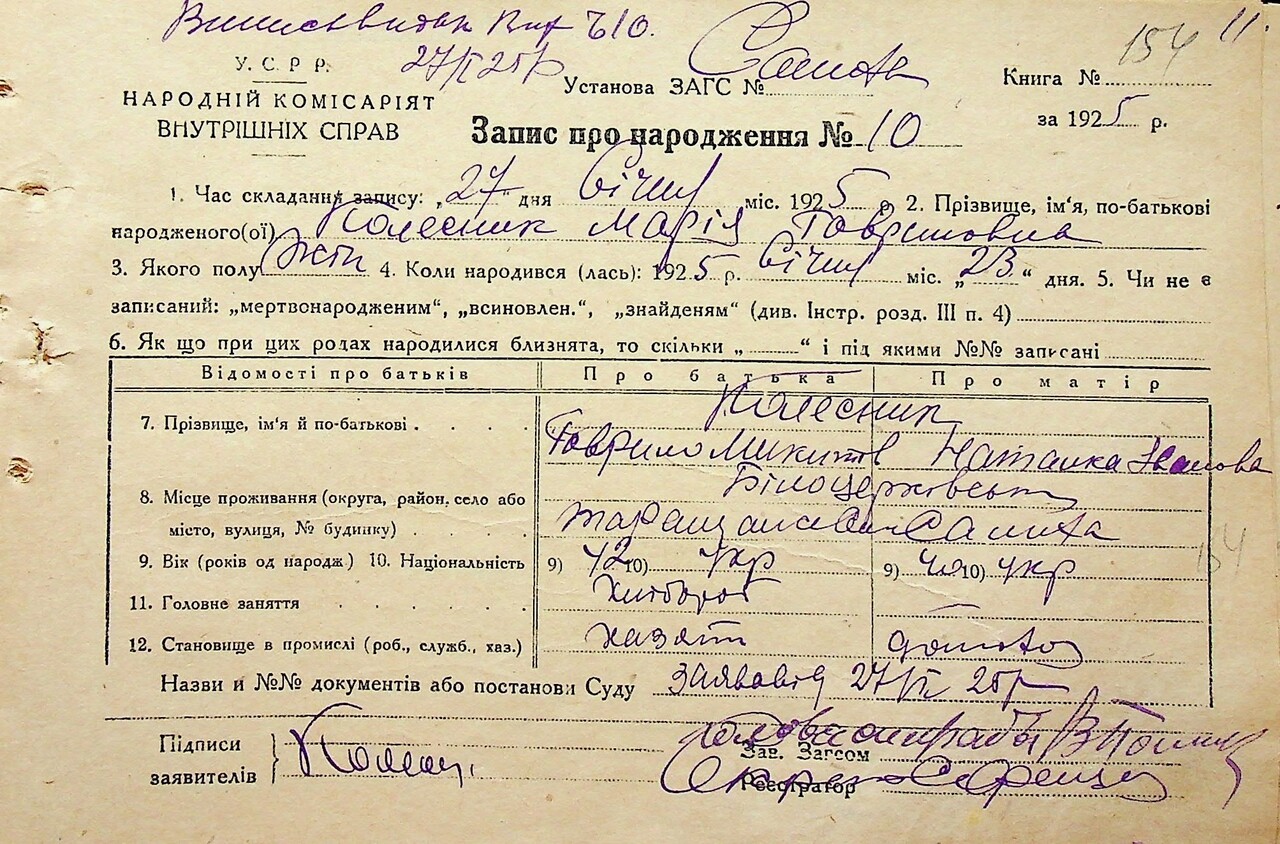 У. С. Р. Р.
НАРОДНІЙ КОМІСАРІЯТ
ВНУТРІШНІХ СПРАВ
Установа ЗАГС №
Книга № 154 11.
за 1925 р.
Запис про народження № 10
1. Час складання запису: „27" дня Січня міс. 1925 р. 2. Прізвище, ім'я, по-батькові
народженого(ої) Колесник Марія Гавриловна
3. Якого полу жін 4. Коли народився (лась): 1925 р. Січня міс. „23" дня. 5. Чи не є
записаний: „мертвонародженим", „всиновлен.", „знайденям" (див. Інстр. розд. III п. 4)
6. Як що при цих родах народилися близнята, то скільки „ " і під якими №№ записані
Відомості про батьків Про батька Про матір
7. Прізвище, ім'я й по-батькові Колесник
Гаврило Микитов Наталка Іванова
8. Місце проживання (округа, район, село або Білоцерковськ
місто, вулиця, № будинку)
154
9. Вік (років од народж.) 10. Національність 9) 42 10) укр 9) 40 10) укр
11. Головне заняття Хлібороб
12. Становище в промислі (роб., служб., хаз.) хазяїн
Назви й №№ документів або постанови Суду 27/I 25р
Підписи
заявителів
Зав. Загсом
Реєстратор